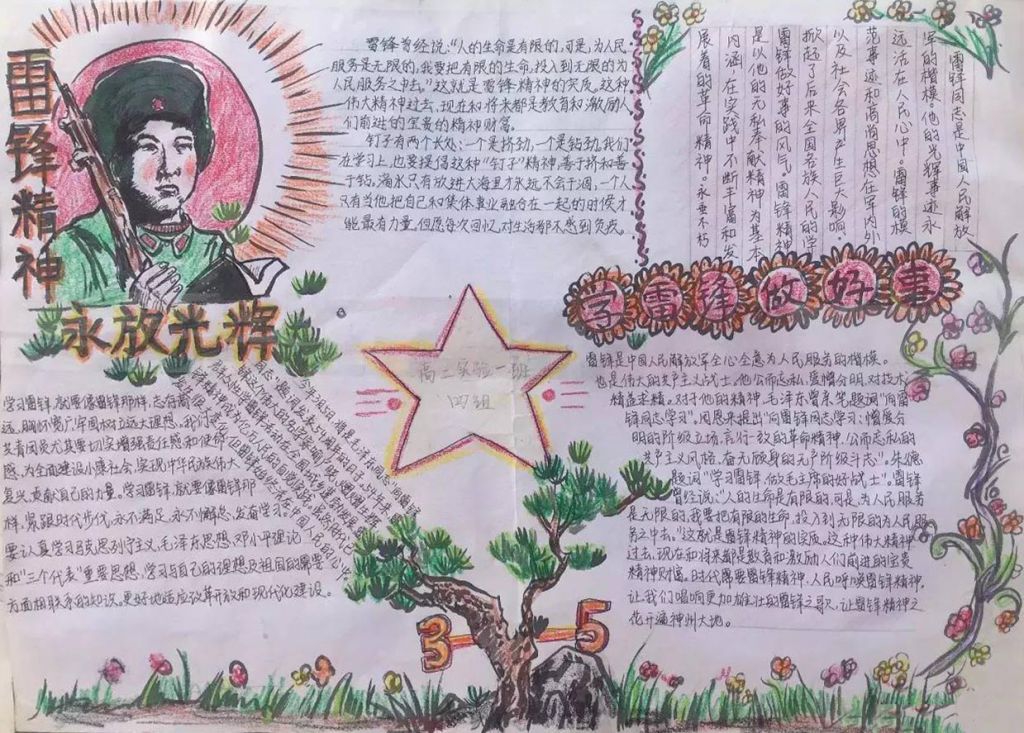 雷锋精神
永放光辉
雷锋曾经说:“人的生命是有限的,可是,为人民
服务是无限的,我要把有限的生命,投入到无限的为
人民服务之中去。”这就是雷锋精神的实质。这种
伟大精神过去、现在和将来都是教育和激励人
们前进的宝贵的精神财富。
钉子有两个长处:一个是挤劲,一个是钻劲,我们
在学习上,也要提倡这种“钉子”精神,善于挤和善
于钻。滴水只有放进大海里才永远不会干涸,一个人
只有当他把自己和集体事业融合在一起的时候才
能最有力量。但愿每次回忆,对生活都不感到负疚。
雷锋同志是中国人民解放
军的楷模。他的光辉事迹永
远活在人民心中。雷锋的模
范事迹和高尚思想在军内外
以及社会各界产生巨大影响,
掀起了后来全国各族人民的学
雷锋做好事的风气。雷锋精神
是以他的无私奉献精神为基本
内涵,在实践中不断丰富和发
展着的革命精神,永垂不朽
学雷锋做好事
高二实验一班
四组
学习雷锋,就要像雷锋那样,志存高
远,胸怀宽广,牢固树立远大理想。我们
共青团员尤其要切实增强责任感和使命
感,为全面建设小康社会,实现中华民族伟大
复兴贡献自己的力量。学习雷锋,就要像雷锋那
样,紧跟时代步伐,永不满足,永不懈怠,发奋学习。
要认真学习马克思列宁主义、毛泽东思想、邓小平理论
和“三个代表”重要思想,学习与自己的理想及祖国的需要
方面相联系的知识。更好地适应改革开放和现代化建设。
雷锋是中国人民解放军全心全意为人民服务的楷模。
也是伟大的共产主义战士,他公而忘私,爱憎分明,对技术
精益求精。对于他的精神,毛泽东曾亲笔题词“向雷
锋同志学习”。周恩来提出“向雷锋同志学习:憎爱分
明的阶级立场,言行一致的革命精神,公而忘私的
共产主义风格,奋不顾身的无产阶级斗志”。朱德
题词“学习雷锋,做毛主席的好战士”。雷锋
曾经说:“人的生命是有限的,可是,为人民服务
是无限的,我要把有限的生命,投入到无限的为人民服
务之中去。”这就是雷锋精神的实质。这种伟大精神
过去、现在和将来都是教育和激励人们前进的宝贵
精神财富。时代需要雷锋精神,人民呼唤雷锋精神,
让我们唱响更加雄壮的雷锋之歌,让雷锋精神之
花开遍神州大地。
3 5